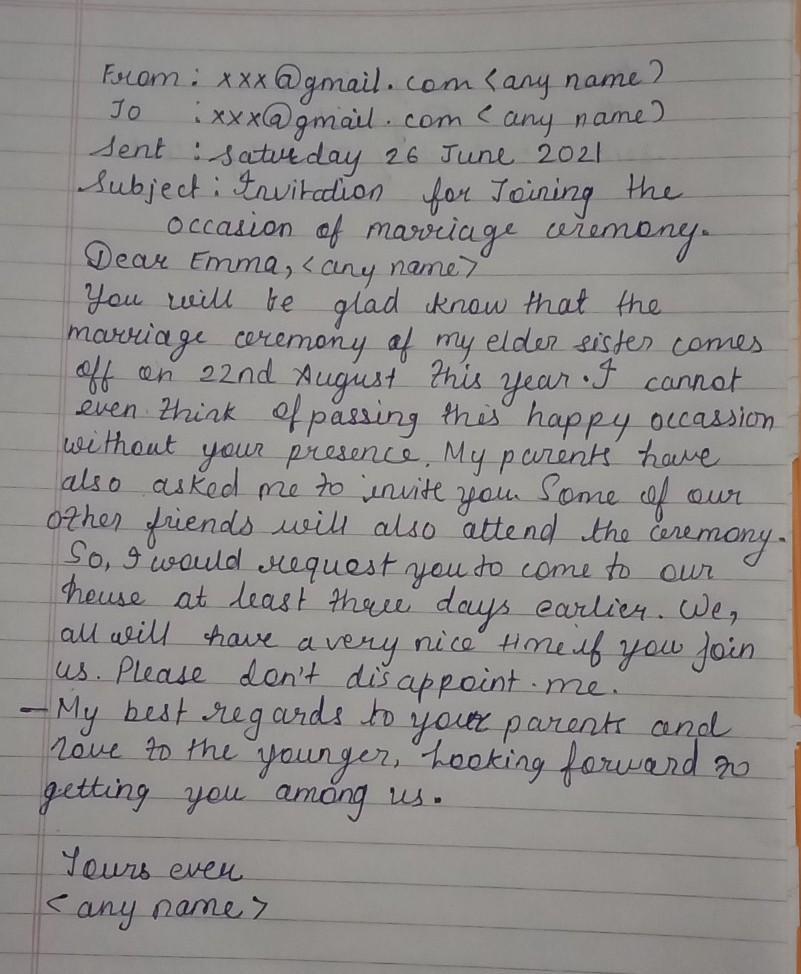 From : xxx@gmail.com <any name>
To : xxx@gmail.com <any name>
Sent : Saturday 26 June 2021
Subject : Invitation for Joining the
occasion of marriage ceremony.
Dear Emma, <any name>
You will be glad know that the
marriage ceremony of my elder sister comes
off on 22nd August this year. I cannot
even think of passing this happy occassion
without your presence. My parents have
also asked me to invite you. Some of our
other friends will also attend the ceremony.
So, I would request you to come to our
house at least three days earlier. We,
all will have a very nice time if you join
us. Please don't disappoint me.
- My best regards to your parents and
love to the younger, Looking forward to
getting you among us.
Yours ever
<any name>